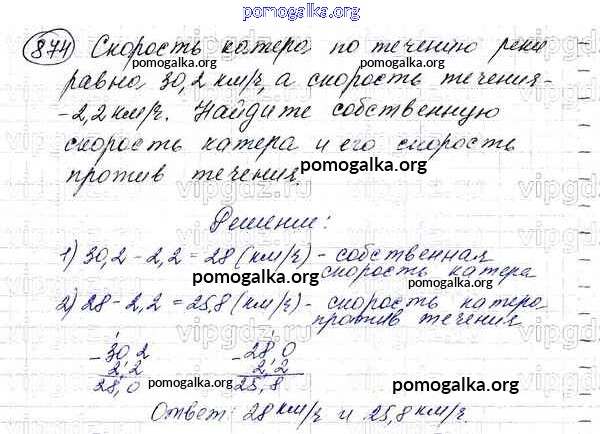 pomogalka.org
874 Скорость катера по течению реки
pomogalka.org
равна 30,2 км/ч, а скорость течения -
- 2,2 км/ч. Найдите собственную
скорость катера и его скорость
против течения.
pomogalka.org
Решение:
1) 30,2 - 2,2 = 28 (км/ч) - собственная
скорость катера
pomogalka.org
2) 28 - 2,2 = 25,8 (км/ч) - скорость катера
против течения
pomogalka.org
- 30,2 - 28,0
2,2 2,2
28,0 25,8
pomogalka.org
pomogalka.org
Ответ: 28 км/ч и 25,8 км/ч.
pomogalka.org